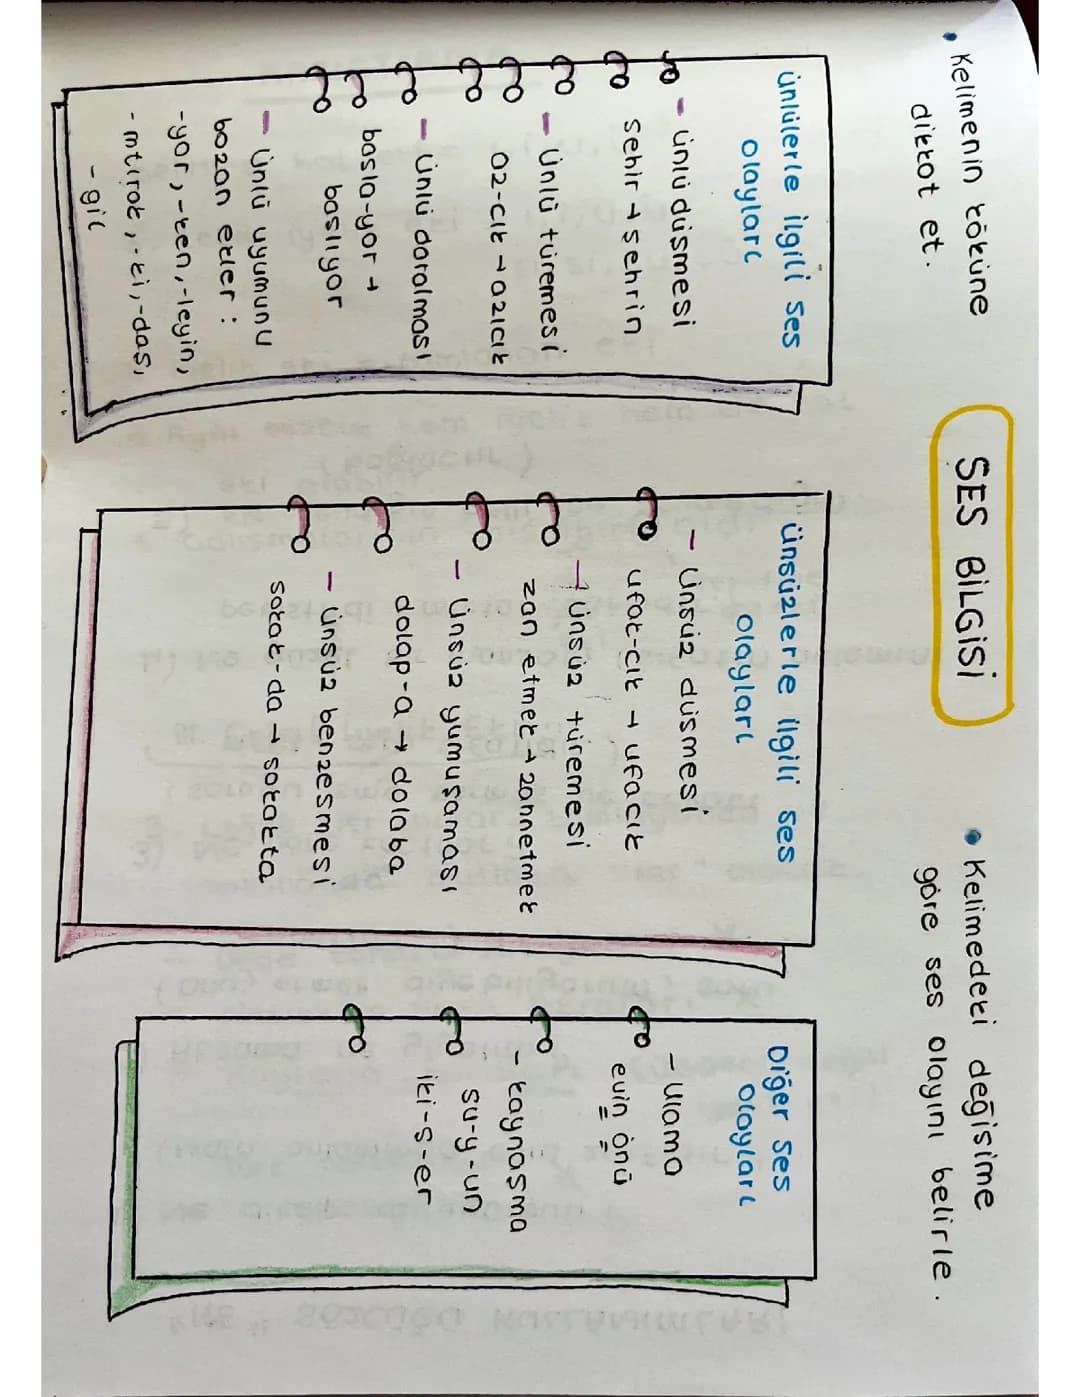 SES BİLGİSİ
• Kelimenin köküne
dikkat et.
• Kelimedeki değişime
göre ses olayını belirle.
ünlülerle ilgili ses
olayları
- ünlü düşmesi
şehir → şehrin
- Ünlü türemesi
az-cık → azıcık
- Ünlü daralması
başla-yor →
başlıyor
- Ünlü uyumunu
bozan ekler:
-yor, -ken, -leyin,
-mtırak, -ki, -daş,
-gil
ünsüzlerle ilgili ses
olayları
- Ünsüz düşmesi
ufak-cık → ufacık
- Ünsüz türemesi
zan etmek → zannetmek
- Ünsüz yumuşaması
dolap-a → dolaba
- ünsüz benzeşmesi
sokak-da → sokakta
Diğer ses
olayları
- Ulama
evin önü
- kaynaşma
su-y-un
iki-ş-er